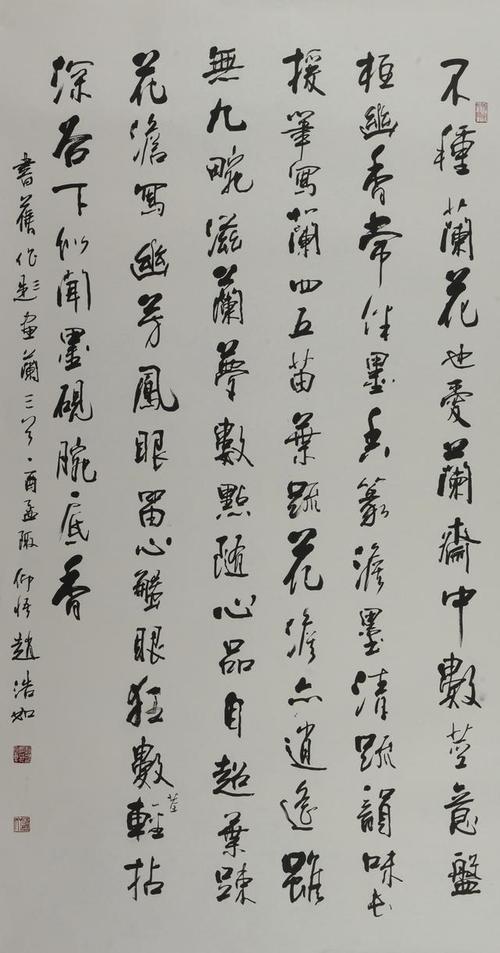 不種蘭花也愛蘭齋中數莖意盤
桓幽香常伴墨香篆澹墨清疏韻味長
援筆寫蘭四五苗葉疏花澹亦逍遙雖
無九畹滋蘭夢數點隨心品自超葉疎
花澹寫幽芳鳳眼留心蟹眼狂數莖輕拈
深谷下似聞墨硯腕底香
書舊作題畫蘭三首酉孟陬仰悟趙浩如